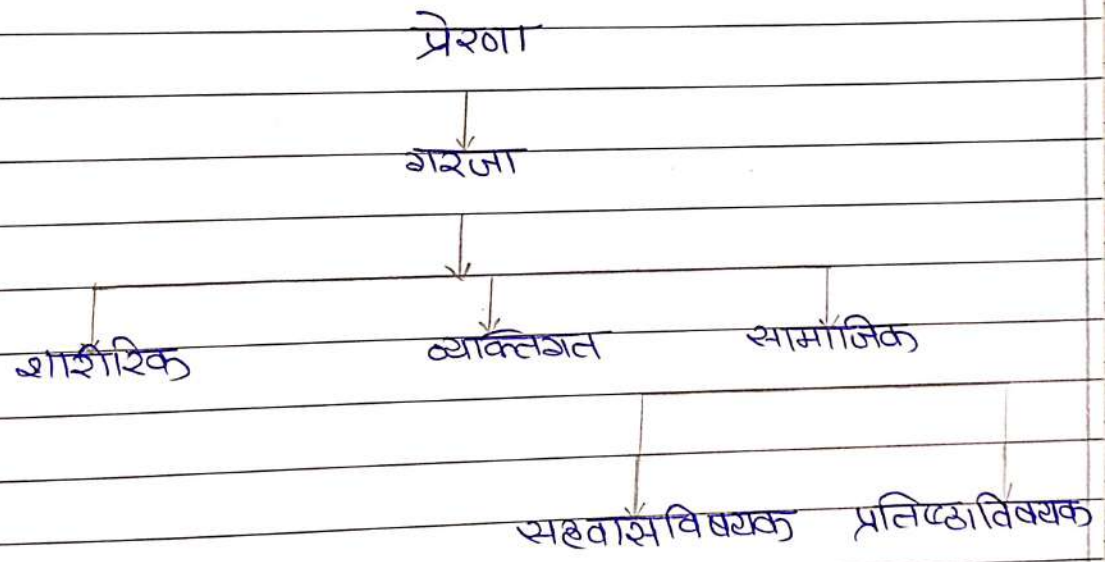 प्रेरणा
गरजा
शारीरिक व्यक्तिगत सामाजिक
सहवासविषयक प्रतिष्ठाविषयक